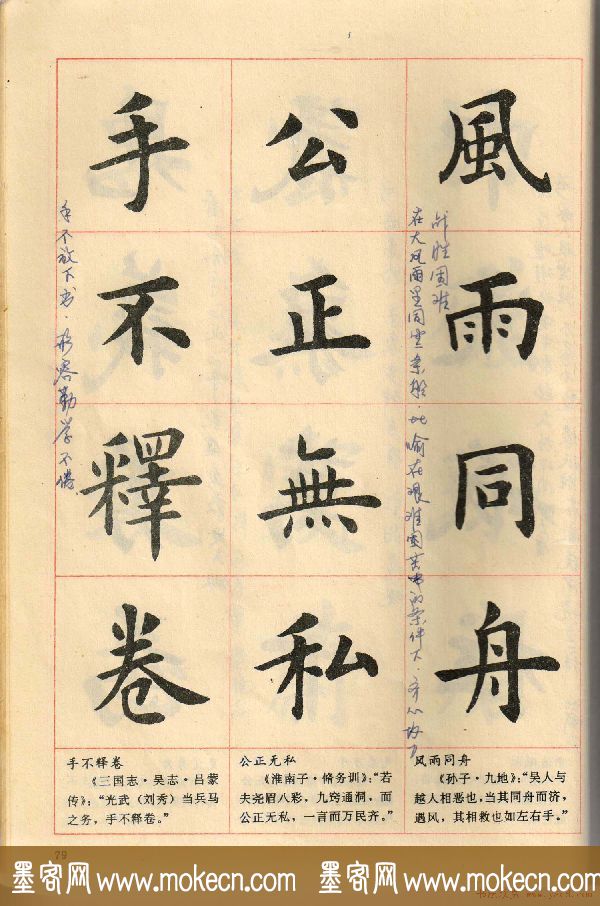 風雨同舟
公正無私
手不釋卷
战胜困难
在大风雨里同坐条船·比喻在艰难困苦的条件下·齐心协力
手不放下书·形容勤学不倦
手不释卷
《三国志·吴志·吕蒙
传》:“光武（刘秀）当兵马
之务，手不释卷。”
公正无私
《淮南子·脩务训》:“若
夫尧眉八彩，九窍通洞，而
公正无私，一言而万民齐。”
风雨同舟
《孙子·九地》:“吴人与
越人相恶也，当其同舟而济，
遇风，其相救也如左右手。”
79
墨客网www.mokecn.com 墨客网www.mokecn.com